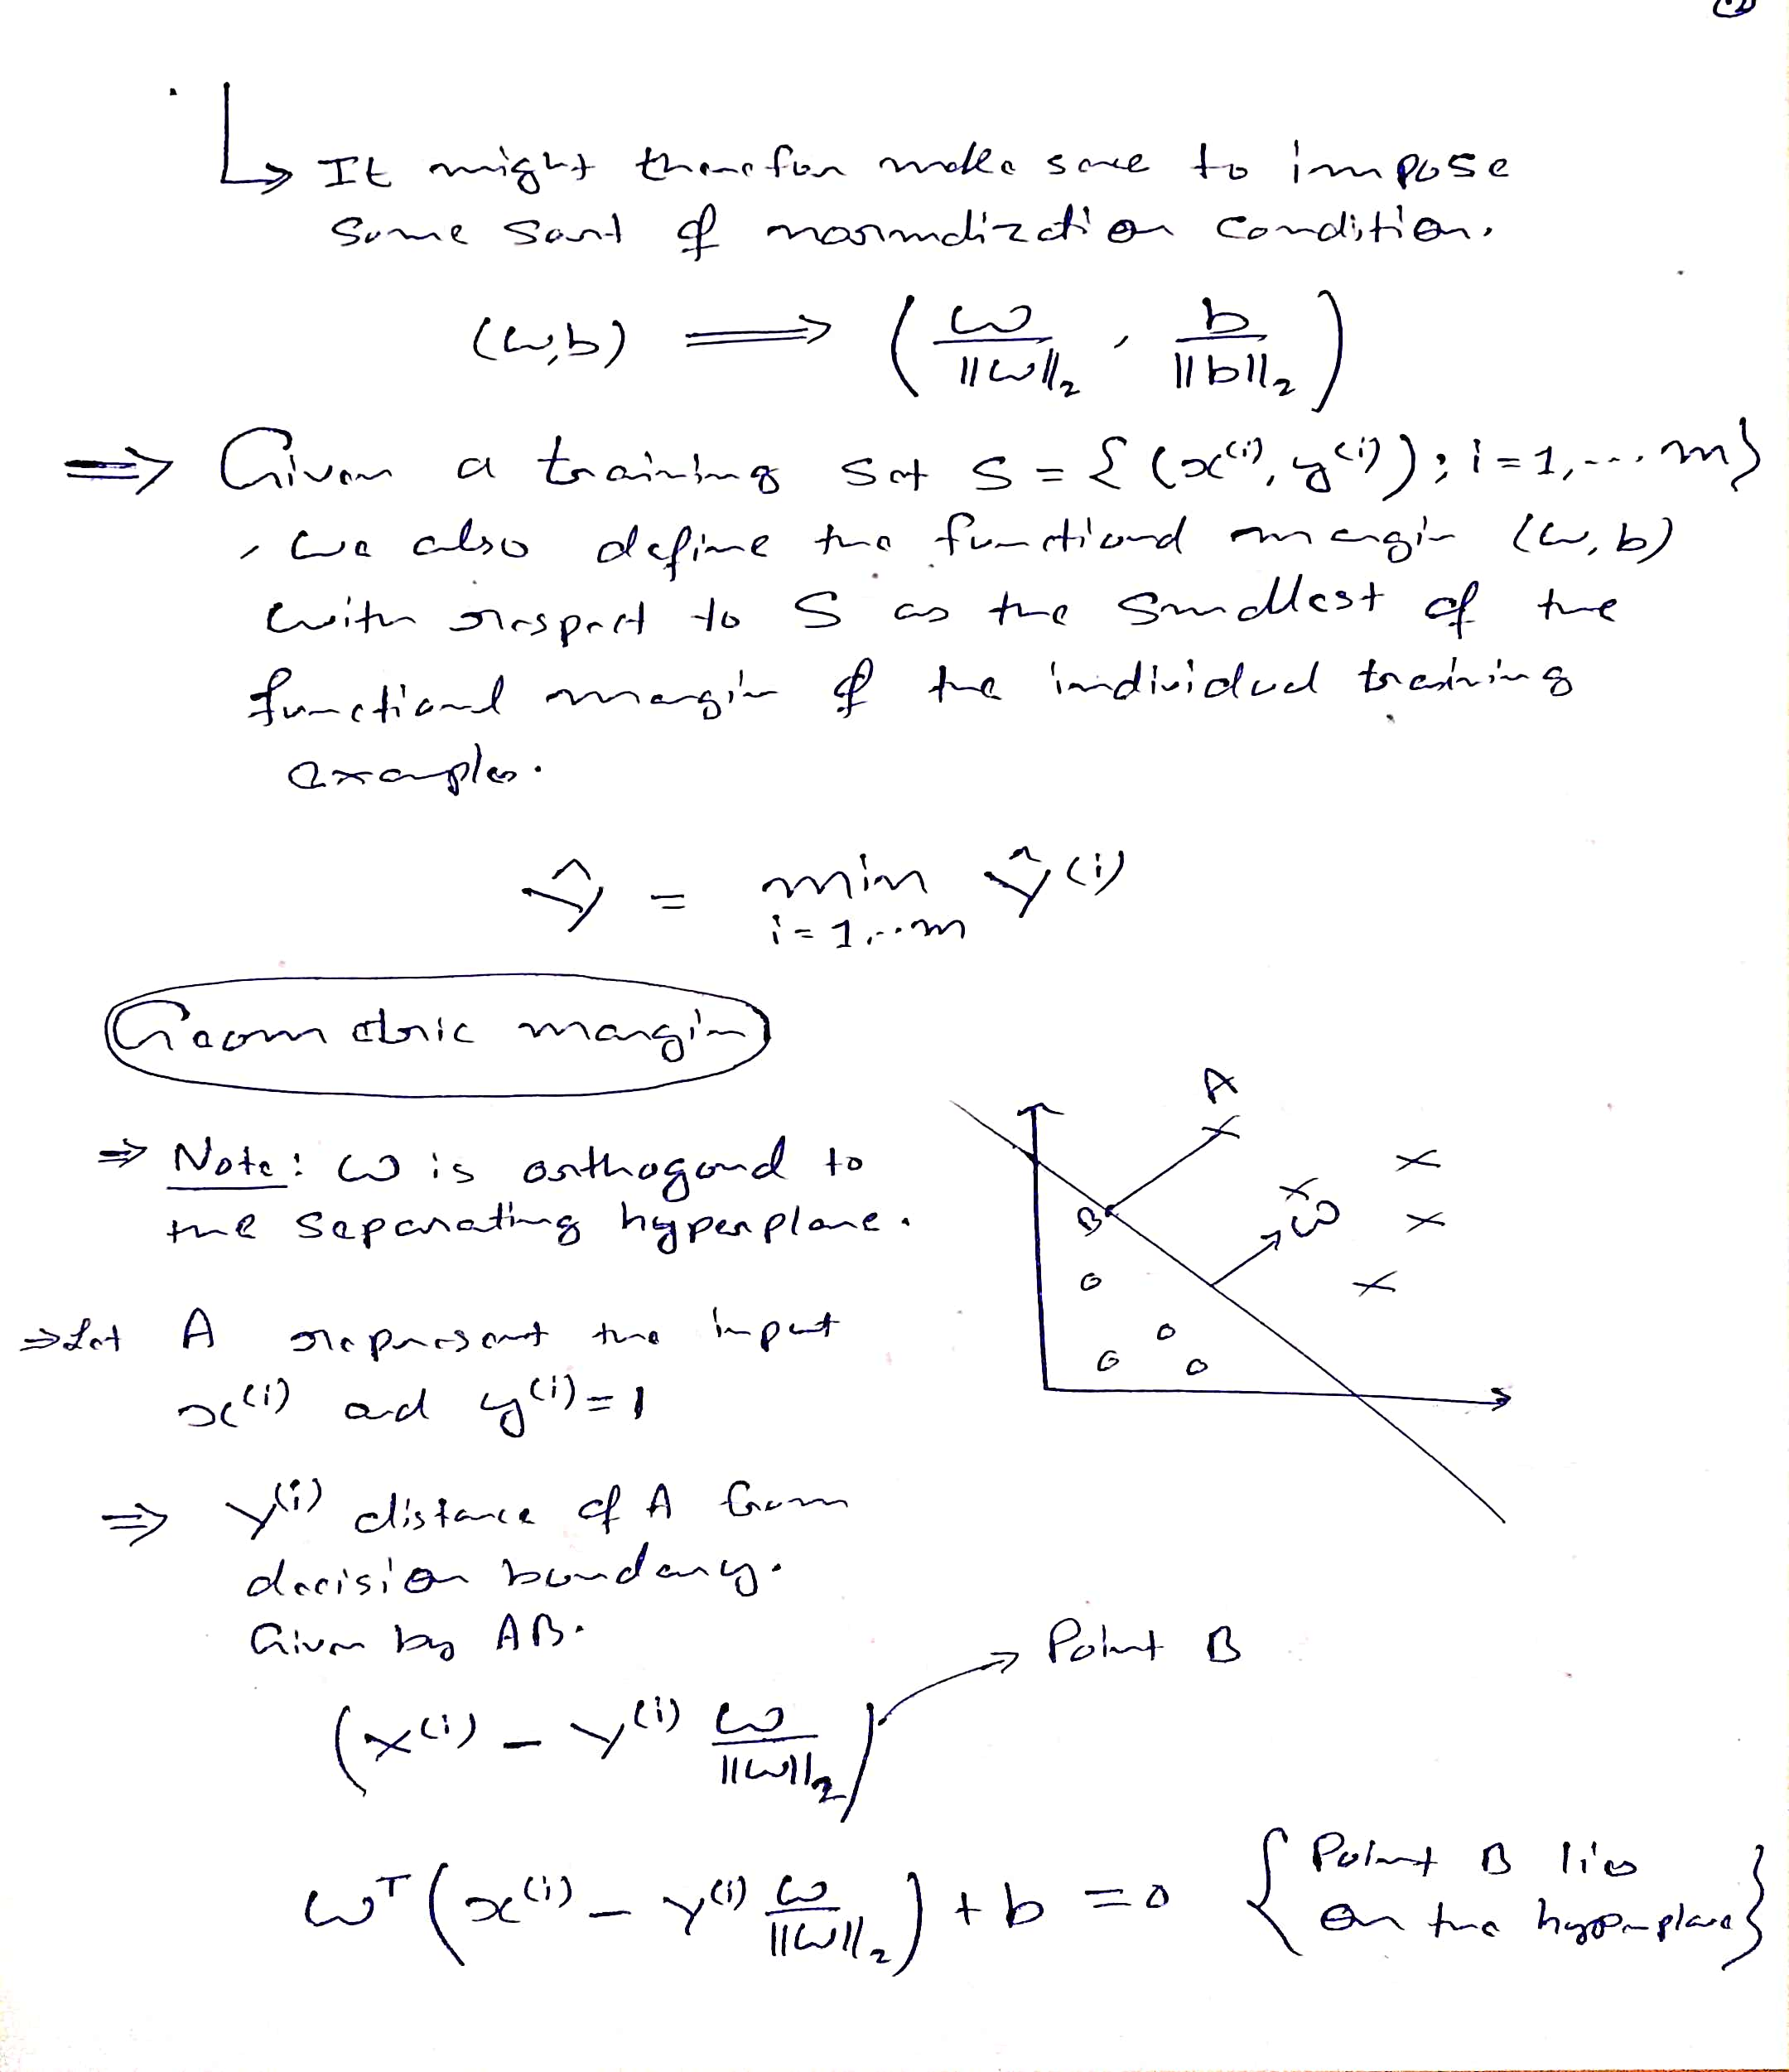 ↳ It might therefore make sense to impose
some sort of normalization condition.
(w,b) ⟹ ( w/||w||₂ , b/||b||₂ )
⟹ Given a training set S = { (x⁽ⁱ⁾, y⁽ⁱ⁾) ; i = 1, ... m }
, we also define the functional margin (w, b)
with respect to S as the smallest of the
functional margin of the individual training
examples.
γ̂ = min γ̂⁽ⁱ⁾
i = 1, .. m
Geometric margin
⇒ Note: w is orthogonal to
the separating hyperplane.
A
B
w
⇒ Let A represent the input
x⁽ⁱ⁾ and y⁽ⁱ⁾ = 1
⇒ γ⁽ⁱ⁾ distance of A from
decision boundary.
Given by AB.
→ Point B
( x⁽ⁱ⁾ − γ⁽ⁱ⁾ w/||w||₂ )
wᵀ ( x⁽ⁱ⁾ − γ⁽ⁱ⁾ w/||w||₂ ) + b = 0 { Point B lies
on the hyperplane }